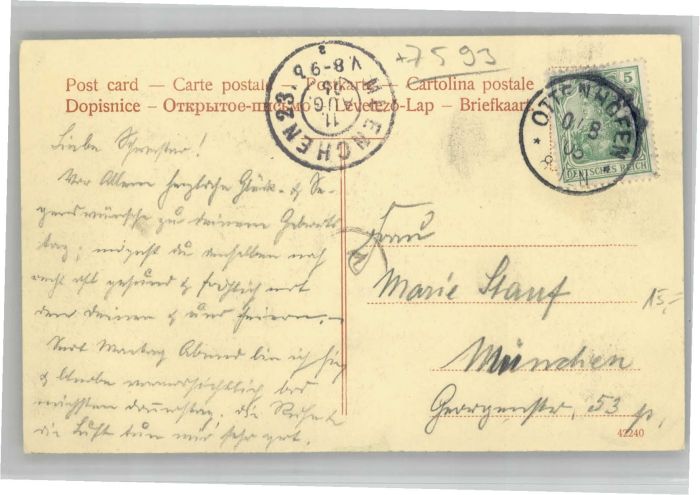 +7593
Post card — Carte postale — Postkarte — Cartolina postale
Dopisnice — Открытое письмо — Levelező-Lap — Briefkaart
MUENCHEN 23
11. AUG.
V. 8-9
OTTENHÖFEN
5
DEUTSCHES REICH
Liebe Schwester!
Vor Allem herzliche Glück- & Se-
genswünsche zu deinem Geburts
tag; mögest du denselben noch
recht oft gesund & fröhlich mit
den Deinen & uns feiern. —
Seit Montag Abend bin ich hier
& bleibe voraussichtlich bis
nächsten Donnerstag, die Ruhe &
die Luft tun mir sehr gut.
Frau
Marie Stauf
München
Georgenstr, 53
15,-
42240